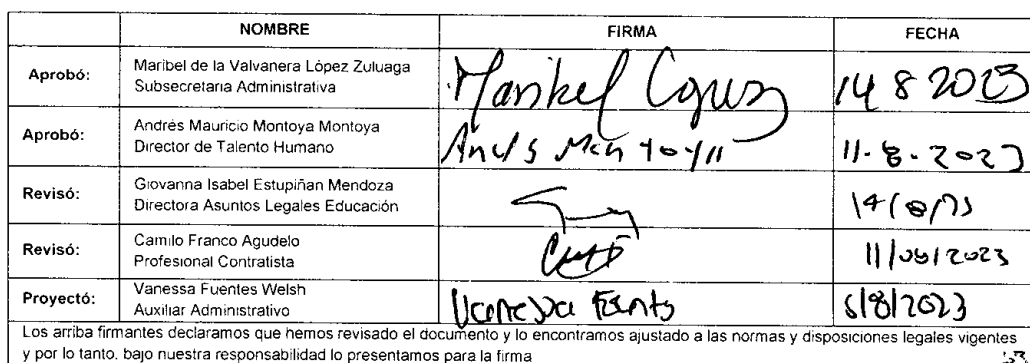 NOMBRE FIRMA FECHA
Aprobó: Maribel de la Valvanera López Zuluaga
Subsecretaria Administrativa
14 8 2023
Aprobó: Andrés Mauricio Montoya Montoya
Director de Talento Humano
11-8-2023
Revisó: Giovanna Isabel Estupiñan Mendoza
Directora Asuntos Legales Educación
Revisó: Camilo Franco Agudelo
Profesional Contratista
11/08/2023
Proyectó: Vanessa Fuentes Welsh
Auxiliar Administrativo
Vanessa Fuentes
8/2023
Los arriba firmantes declaramos que hemos revisado el documento y lo encontramos ajustado a las normas y disposiciones legales vigentes
y por lo tanto, bajo nuestra responsabilidad lo presentamos para la firma